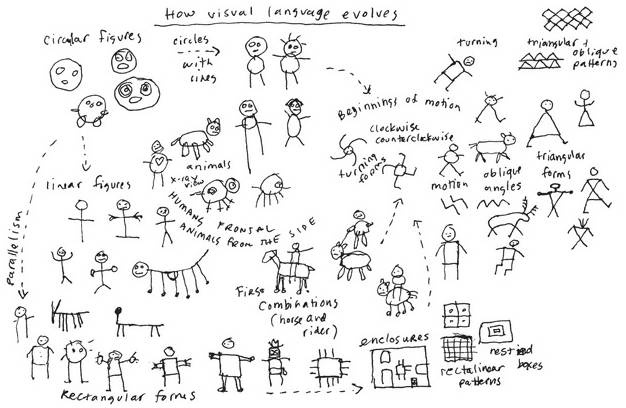 How visual language evolves
circular figures
circles
with
lines
turning
triangular +
oblique
patterns
Beginnings of motion
clockwise
counterclockwise
turning
forms
animals
x-ray
view
linear figures
HUMANS FRONTAL
ANIMALS FROM THE SIDE
motion
oblique
angles
triangular
forms
Parallelism
First
Combinations
(horse and
rider)
enclosures
nested
boxes
rectalinear
patterns
Rectangular forms